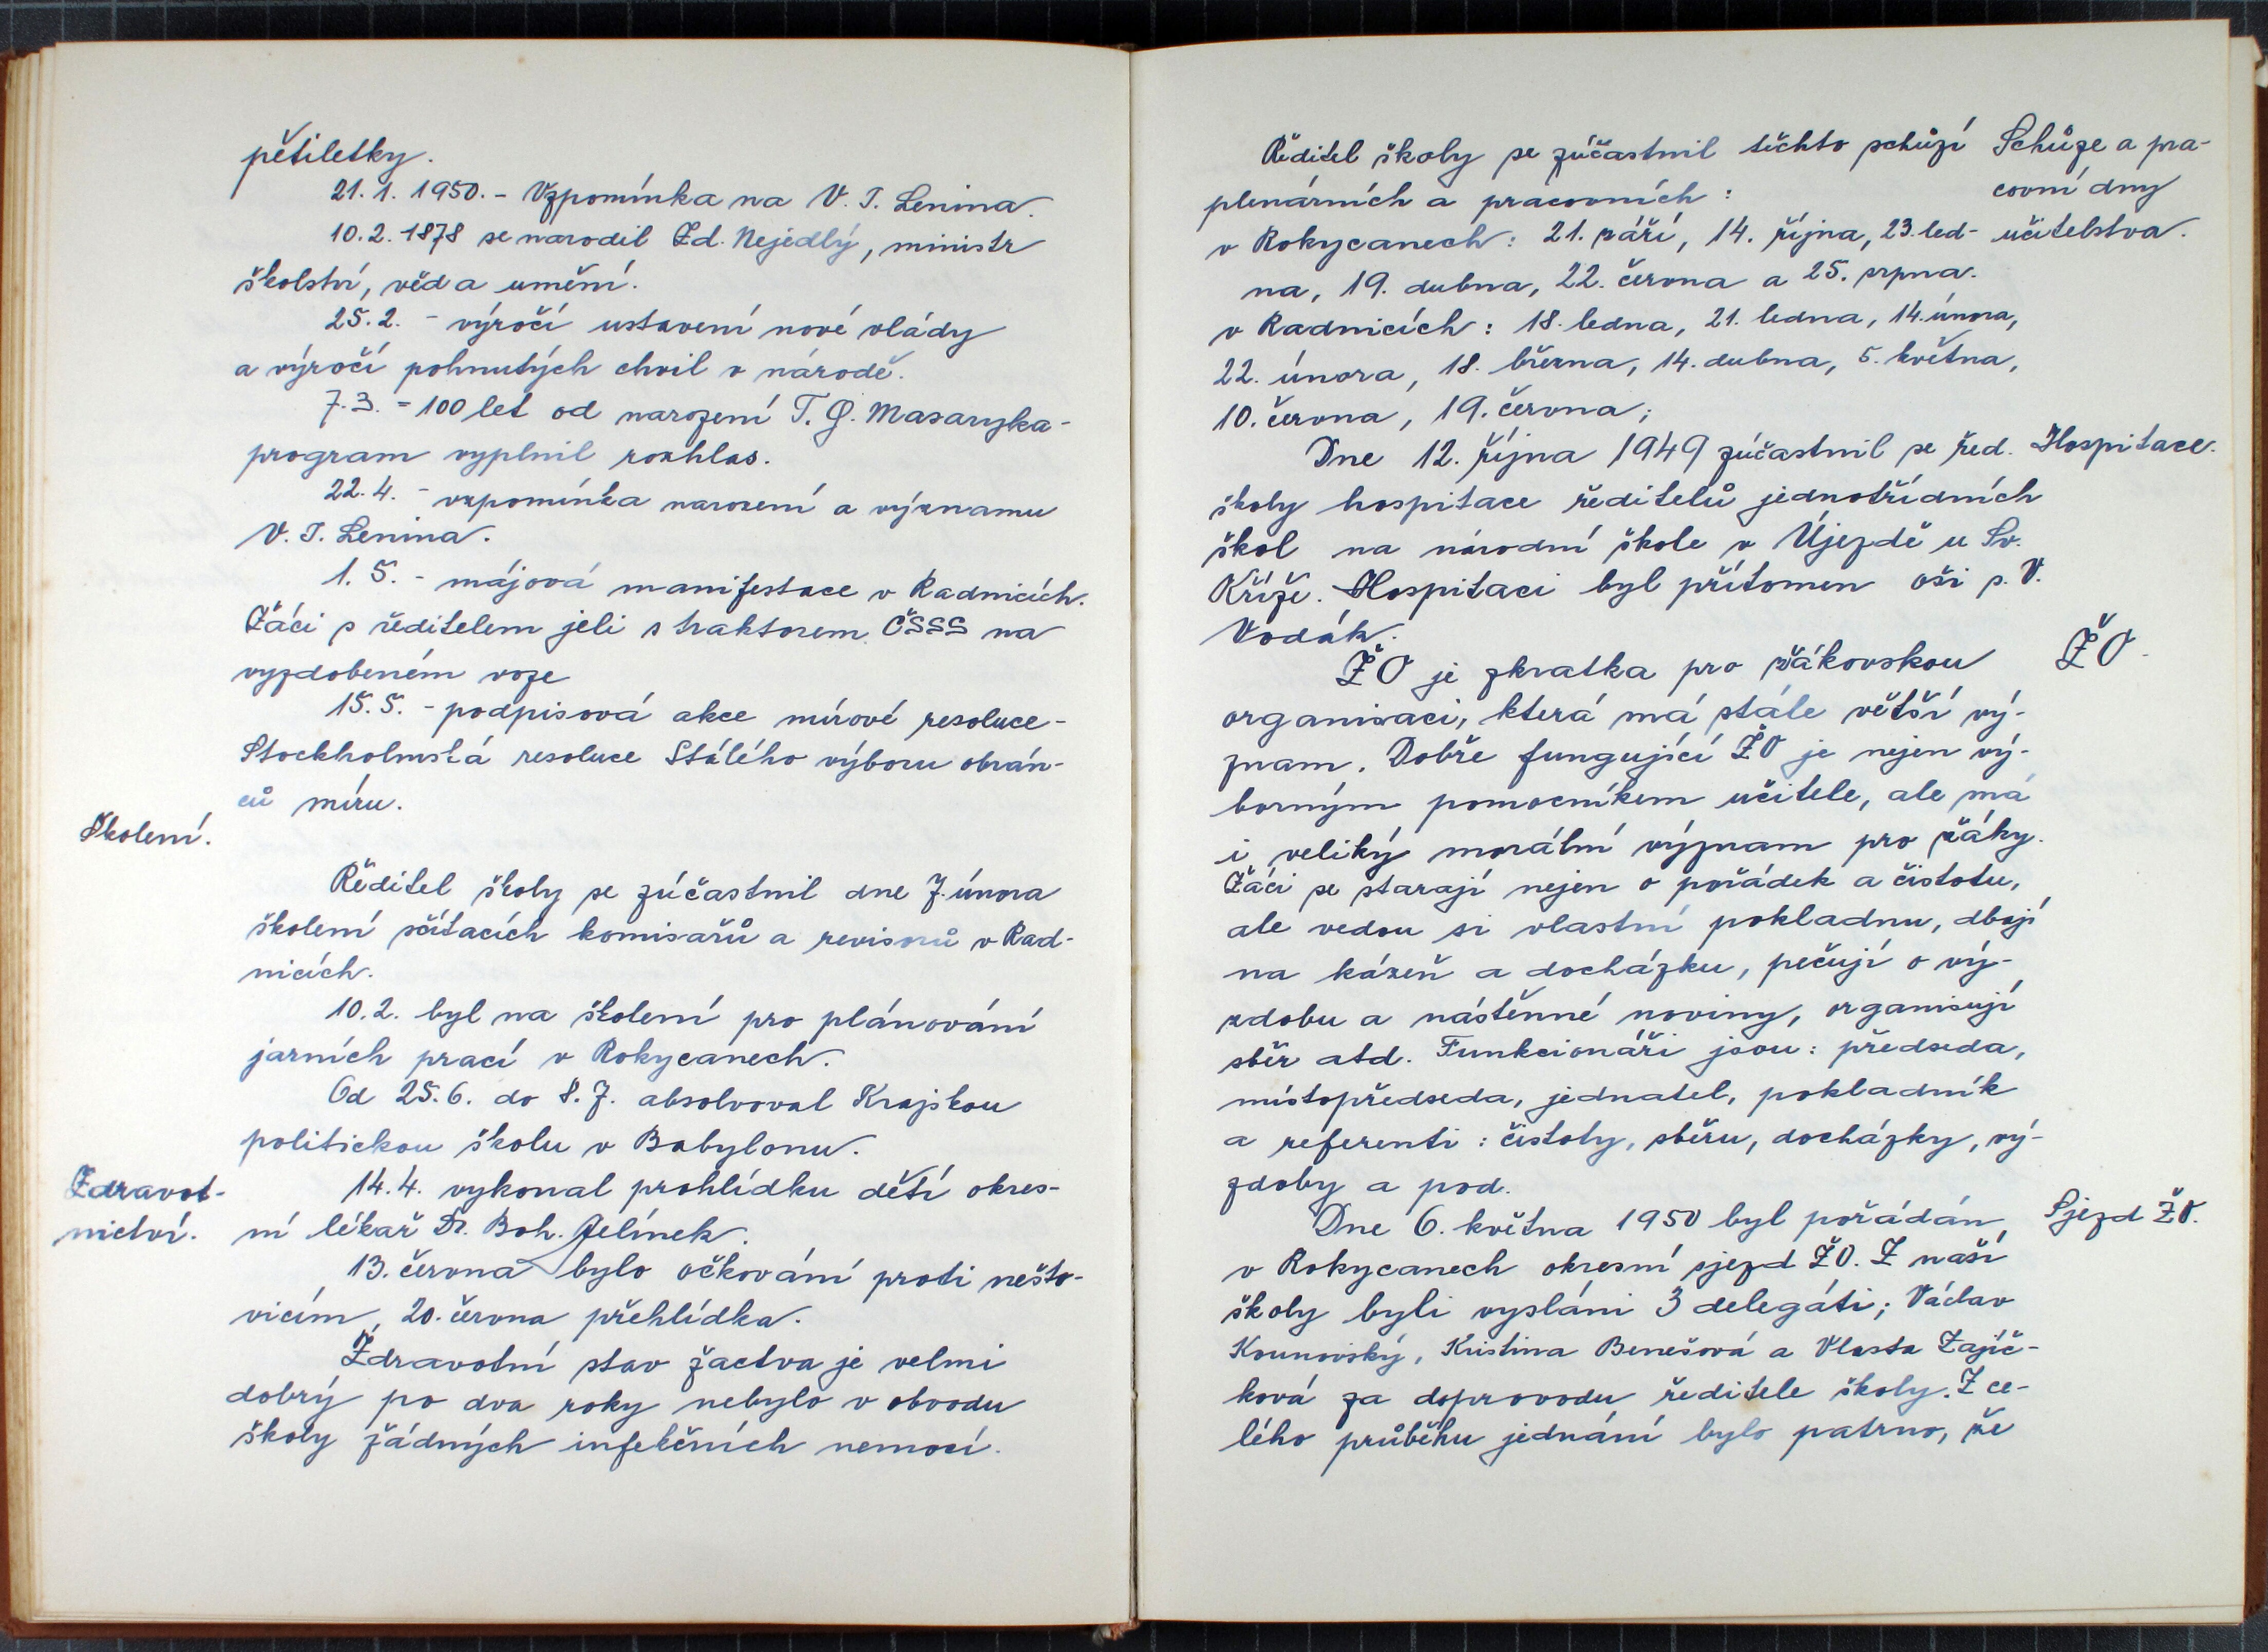 pětiletky.
21. 1. 1950. - Vzpomínka na V. I. Lenina.
10. 2. 1878 se narodil Zd. Nejedlý, ministr
školství, věd a umění.
25. 2. - výročí ustavení nové vlády
a výročí pohnutých chvil v národě.
7. 3. - 100 let od narození T. G. Masaryka -
program vyplnil rozhlas.
22. 4. - vzpomínka narození a významu
V. I. Lenina.
1. 5. - májová manifestace v Radnicích.
Žáci s ředitelem jeli s traktorem ČSSS na
vyzdobeném voze
15. 5. - podpisová akce mírové resoluce -
Stockholmská resoluce Stálého výboru obrán-
ců míru.
Školení.
Ředitel školy se zúčastnil dne 7. února
školení sčítacích komisařů a revisorů v Rad-
nicích.
10. 2. byl na školení pro plánování
jarních prací v Rokycanech.
Od 25. 6. do 8. 7. absolvoval Krajskou
politickou školu v Babylonu.
Zdravot-
nictví.
14. 4. vykonal prohlídku dětí okres-
ní lékař Dr. Boh. Jelínek.
13. června bylo očkování proti nešto-
vicím, 20. června přehlídka.
Zdravotní stav žactva je velmi
dobrý po dva roky nebylo v obvodu
školy žádných infekčních nemocí.
Ředitel školy se zúčastnil těchto schůzí
plenárních a pracovních :
v Rokycanech : 21. září, 14. října, 23. led-
na, 19. dubna, 22. června a 25. srpna.
Schůze a pra-
covní dny
učitelstva.
v Radnicích : 18. ledna, 21. ledna, 14. února,
22. února, 18. března, 14. dubna, 5. května,
10. června, 19. června ;
Dne 12. října 1949 zúčastnil se řed.
Hospitace.
školy hospitace ředitelů jednotřídních
škol na národní škole v Újezdě u Sv.
Kříže. Hospitaci byl přítomen oši s. V.
Vodák.
ŽO je zkratka pro žákovskou
ŽO.
organisaci, která má stále větší vý-
znam. Dobře fungující ŽO je nejen vý-
borným pomocníkem učitele, ale má
i veliký morální význam pro žáky.
Žáci se starají nejen o pořádek a čistotu,
ale vedou si vlastní pokladnu, dbají
na kázeň a docházku, pečují o vý-
zdobu a nástěnné noviny, organisují
sběr atd. Funkcionáři jsou : předseda,
místopředseda, jednatel, pokladník
a referenti : čistoty, sběru, docházky, vý-
zdoby a pod.
Dne 6. května 1950 byl pořádán
Sjezd ŽO.
v Rokycanech okresní sjezd ŽO. Z naší
školy byli vysláni 3 delegáti ; Václav
Kounovský, Kristina Benešová a Vlasta Zajíč-
ková za doprovodu ředitele školy. Z ce-
lého průběhu jednání bylo patrno, že